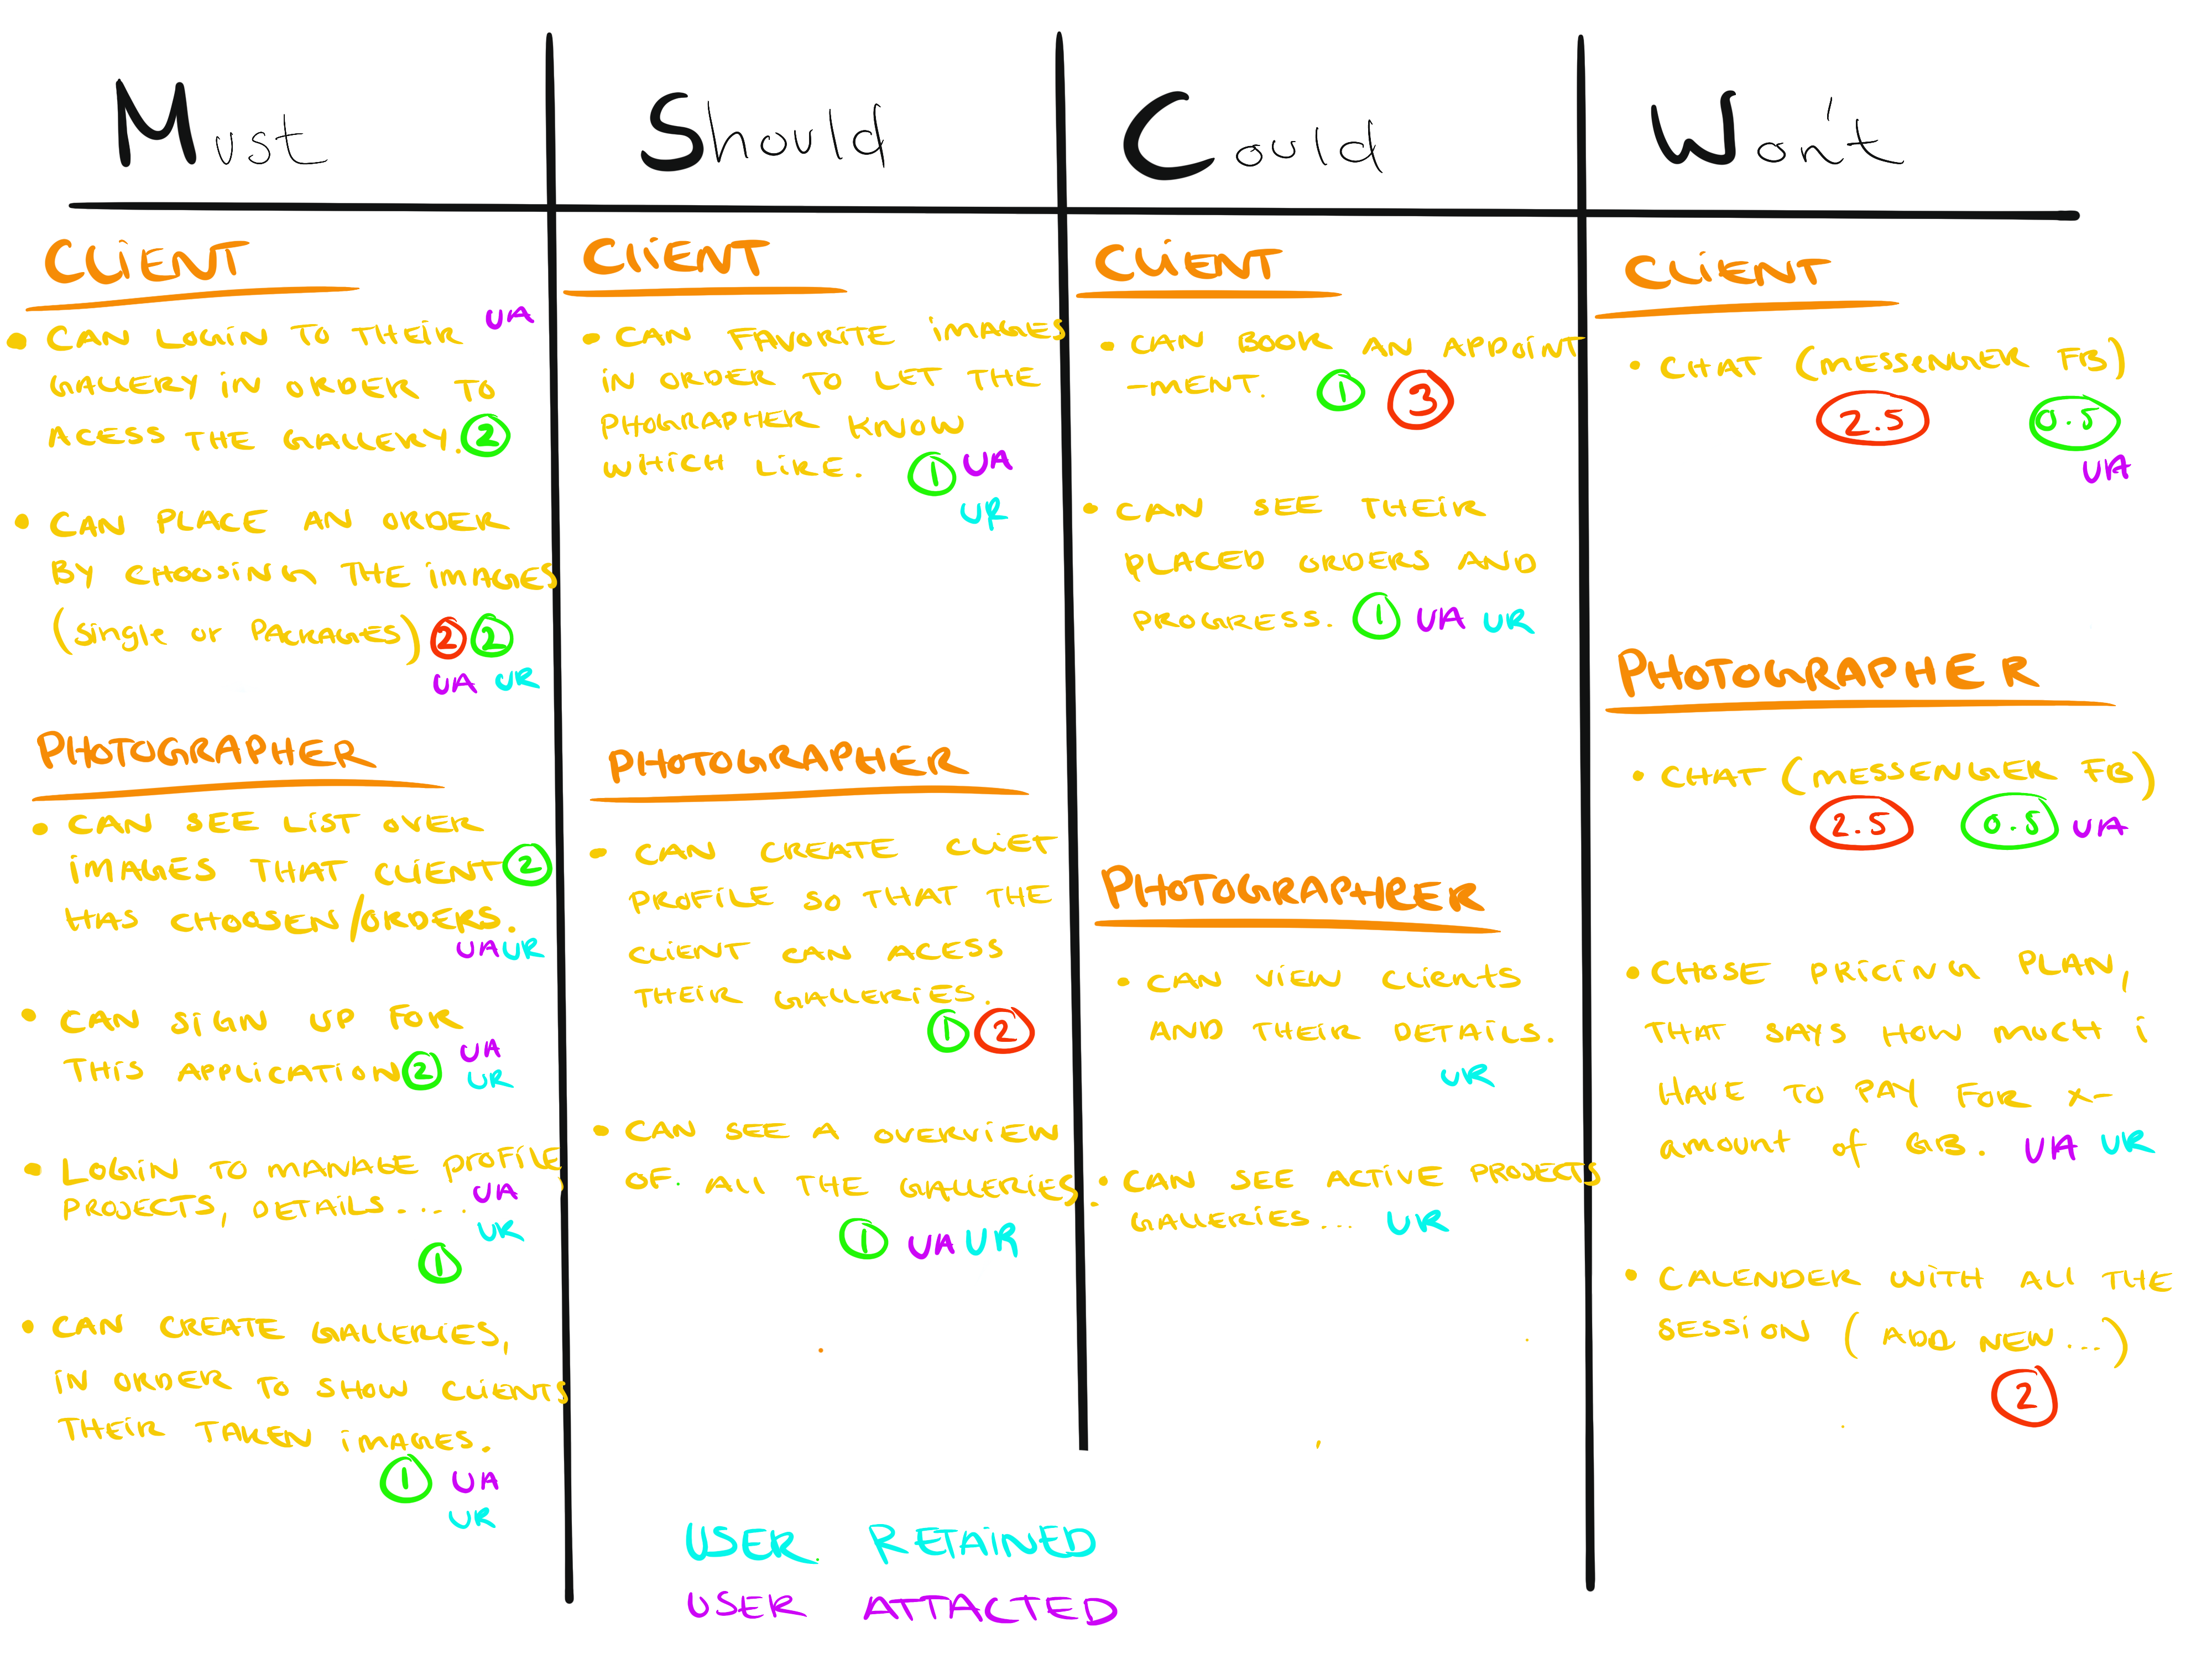 Must
CLIENT
• CAN LOGIN TO THEIR UA
GALLERY IN ORDER TO
ACESS THE GALLERY. 2
• CAN PLACE AN ORDER
BY CHOOSING THE IMAGES
(single or PACKAGES) 2 2
UA UR
PHOTOGRAPHER
• CAN SEE LIST OVER
IMAGES THAT CLIENT 2
HAS CHOOSEN/ORDERS.
UA UR
• CAN SIGN UP FOR
THIS APPLICATION 2 UA
UR
• LOGIN TO MANAGE PROFILE,
PROJECTS, DETAILS.... UA
UR
1
• CAN CREATE GALLERIES,
IN ORDER TO SHOW CLIENTS
THEIR TAKEN IMAGES.
1 UA
UR
Should
CLIENT
• CAN FAVORITE IMAGES
IN ORDER TO LET THE
PHOGRAPHER KNOW
WHICH LIKE. 1 UA
UR
PHOTOGRAPHER
• CAN CREATE CLIET
PROFILE SO THAT THE
CLIENT CAN ACESS
THEIR GALLERIES.
1 2
• CAN SEE A OVERVIEW
OF ALL THE GALLERIES.
1 UA UR
Could
CLIENT
• CAN BOOK AN APPOINT
-MENT. 1 3
• CAN SEE THEIR
PLACED ORDERS AND
PROGRESS. 1 UA UR
PHOTOGRAPHER
• CAN VIEW CLIENTS
AND THEIR DETAILS.
UR
• CAN SEE ACTIVE PROJECTS
GALLERIES... UR
Won't
CLIENT
• CHAT (MESSENGER FB)
2.5 0.5
UA
PHOTOGRAPHER
• CHAT (MESSENGER FB)
2.5 0.5 UA
• CHOSE PRICING PLAN,
THAT SAYS HOW MUCH I
HAVE TO PAY FOR X-
amount of GB. UA UR
• CALENDER WITH ALL THE
SESSION (ADD NEW...)
2
USER RETAINED
USER ATTACTED